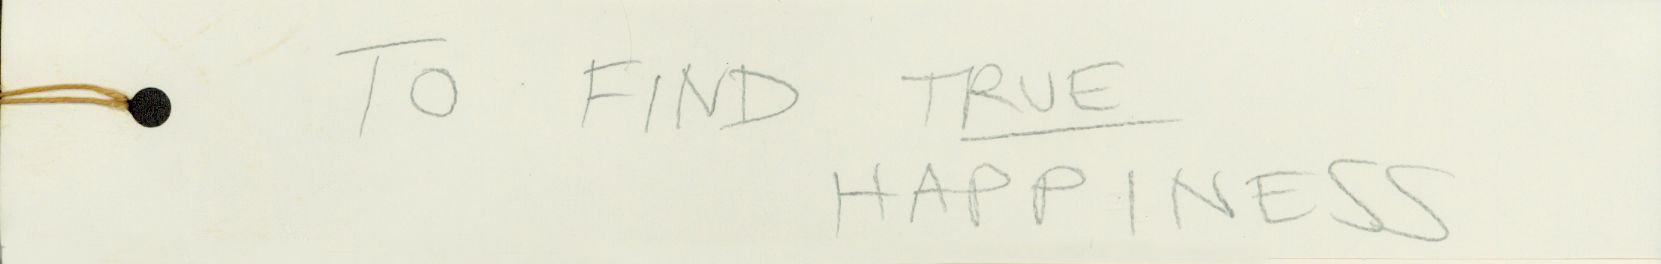 TO FIND TRUE
HAPPINESS